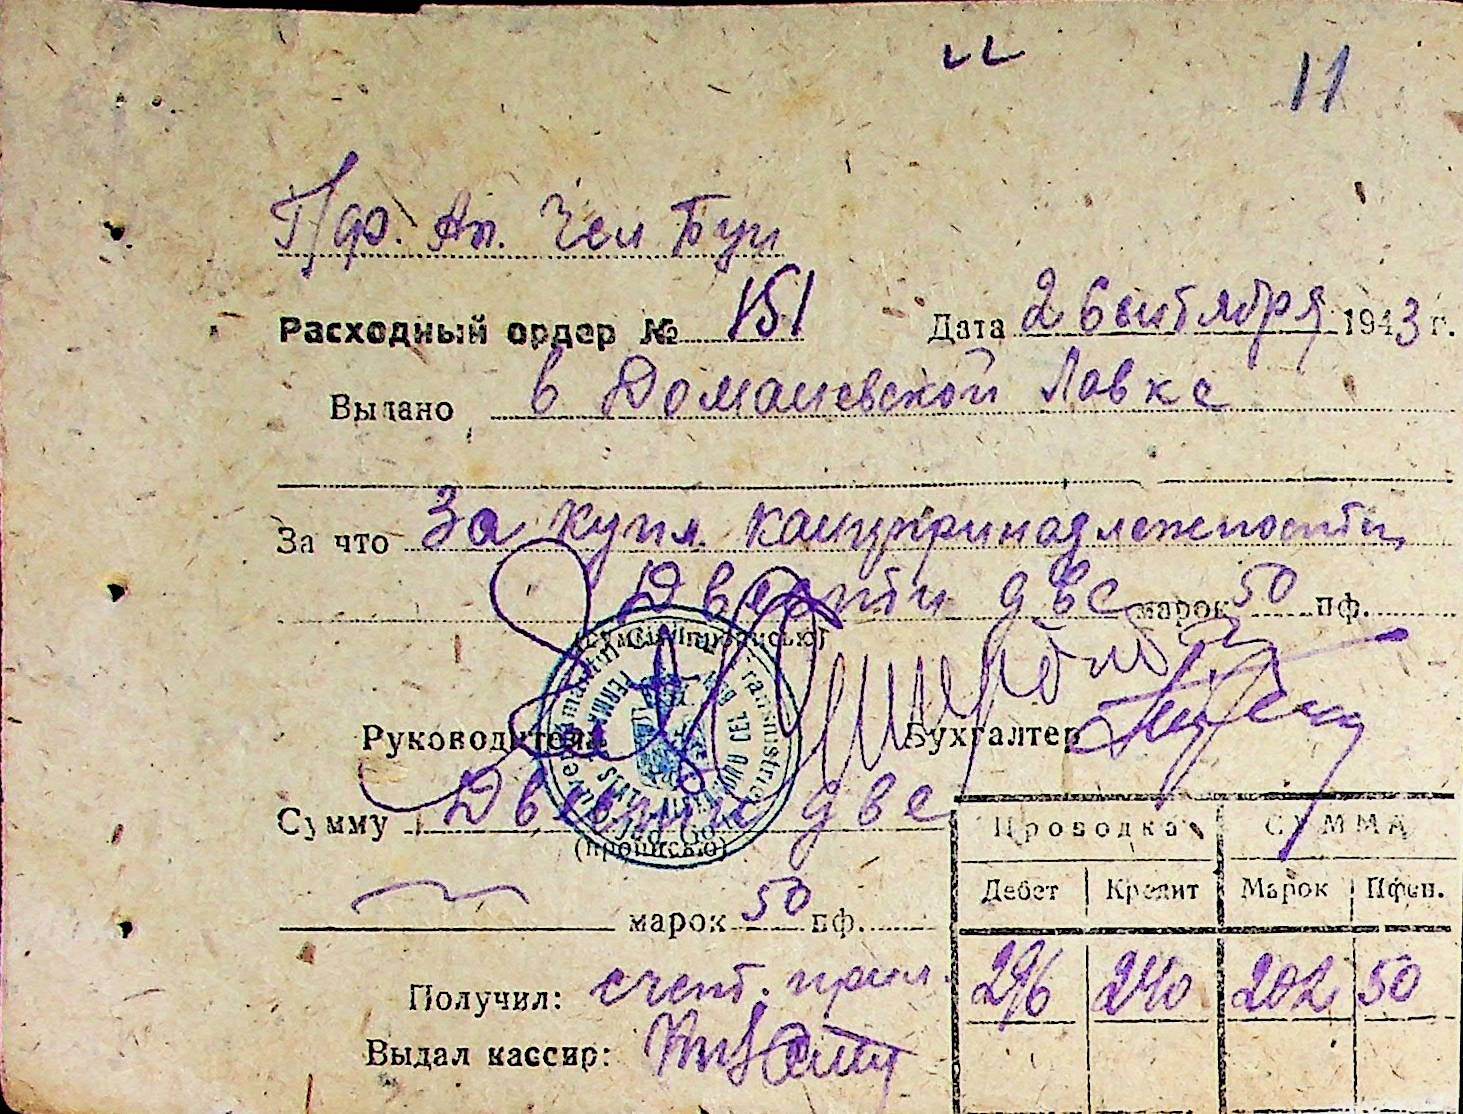 11
П/ф. Ап. Чел Буи
Расходный ордер № 151 Дата 2 Сентября 1943 г.
Выдано в Доманевской Лавке
За что За купл. канцпринадлежности
Двести две марок 50 пф.
(сумма прописью)
Руководитель Бухгалтер
Сумму Двести две
(прописью)
марок 50 пф.
Проводка СУММА
Дебет Кредит Марок Пфен.
296 240 202 50
Получил: счет. прил.
Выдал кассир: